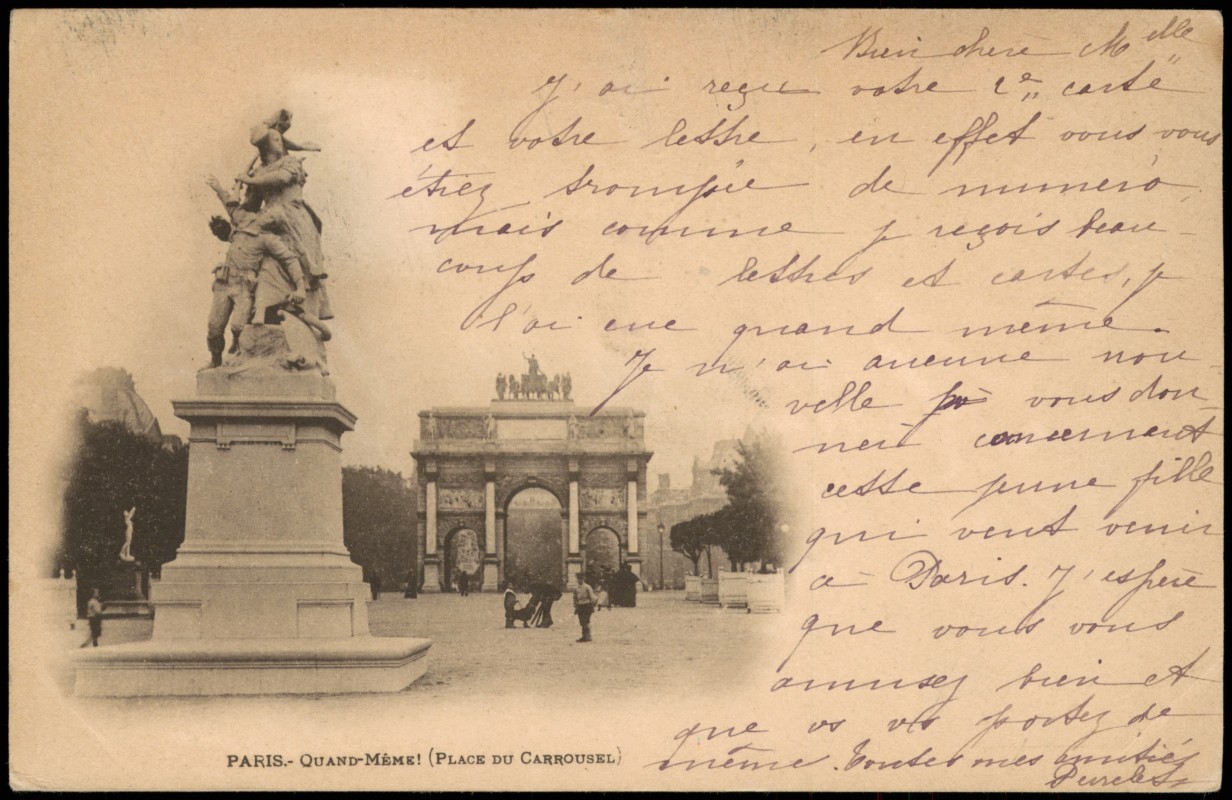 Bien chère Mlle
J'ai reçu votre 2e carte
et votre lettre, en effet vous vous
étiez trompée de numéro,
mais comme je reçois beau-
coup de lettres et cartes, je
l'ai eue quand même.
Je n'ai aucune nou-
velle à vous don-
ner concernant
cette jeune fille
qui veut venir
à Paris. J'espère
que vous vous
amusez bien et
que vs vs portez de
même. Toutes mes amitiés
PARIS.- QUAND-MÊME! (PLACE DU CARROUSEL)